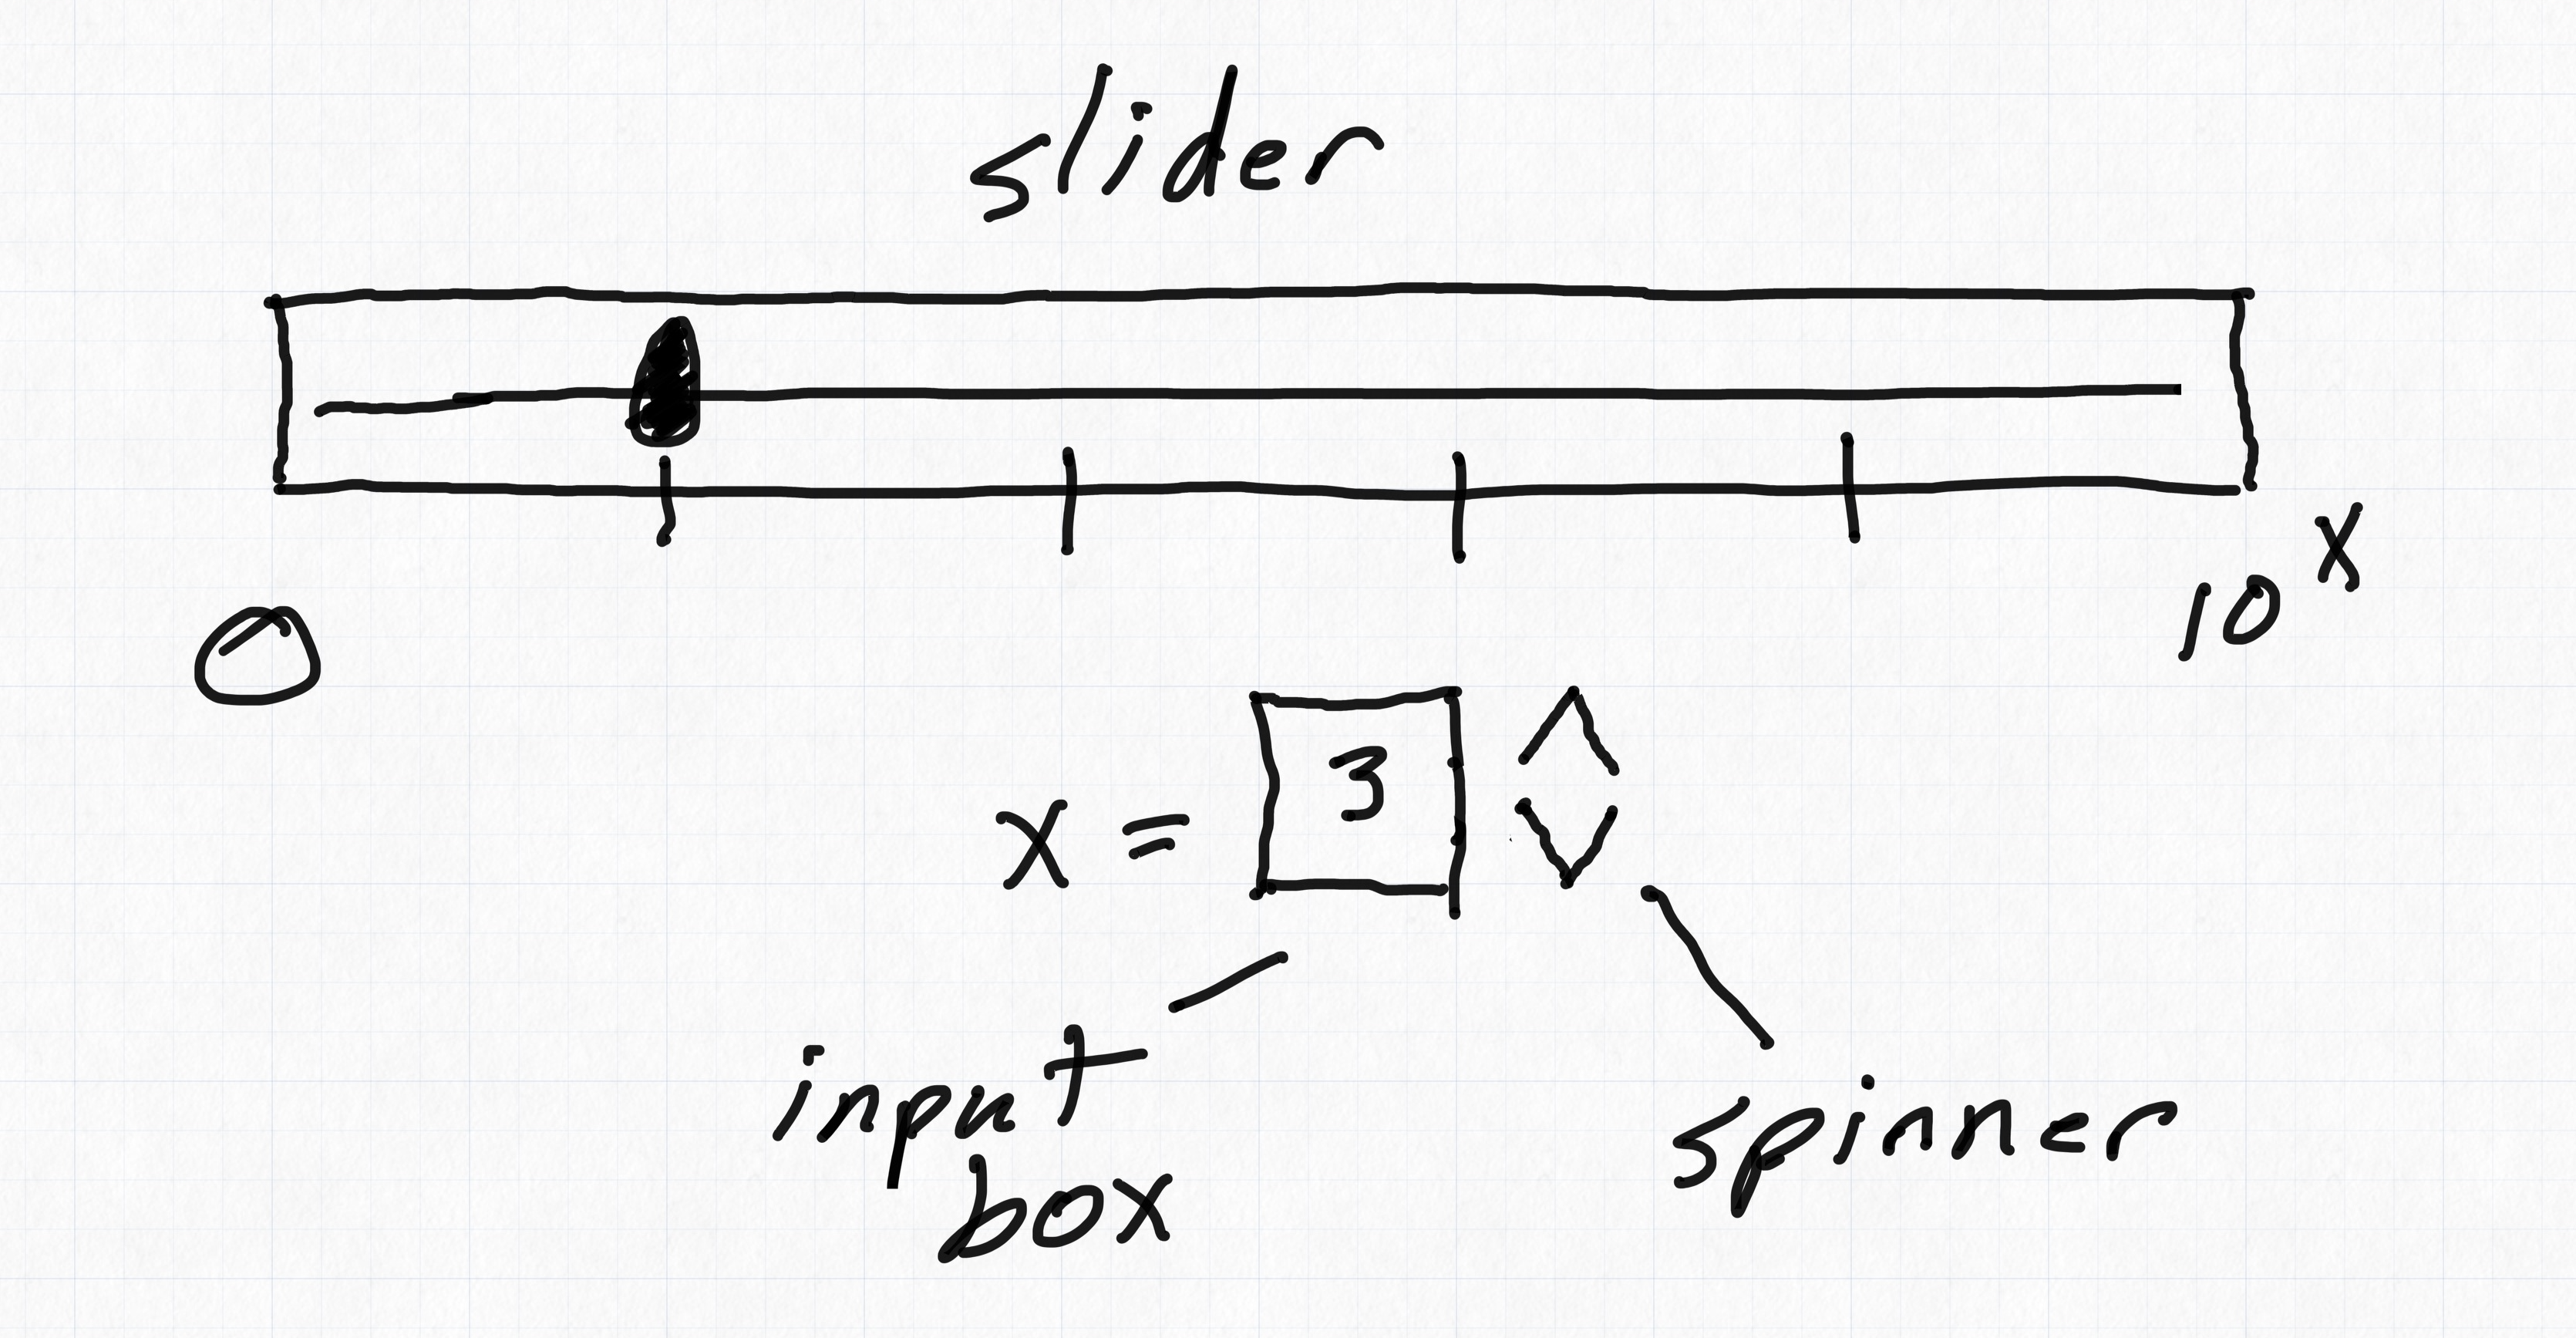 slider
0
10^x
x = 3
input
box
spinner